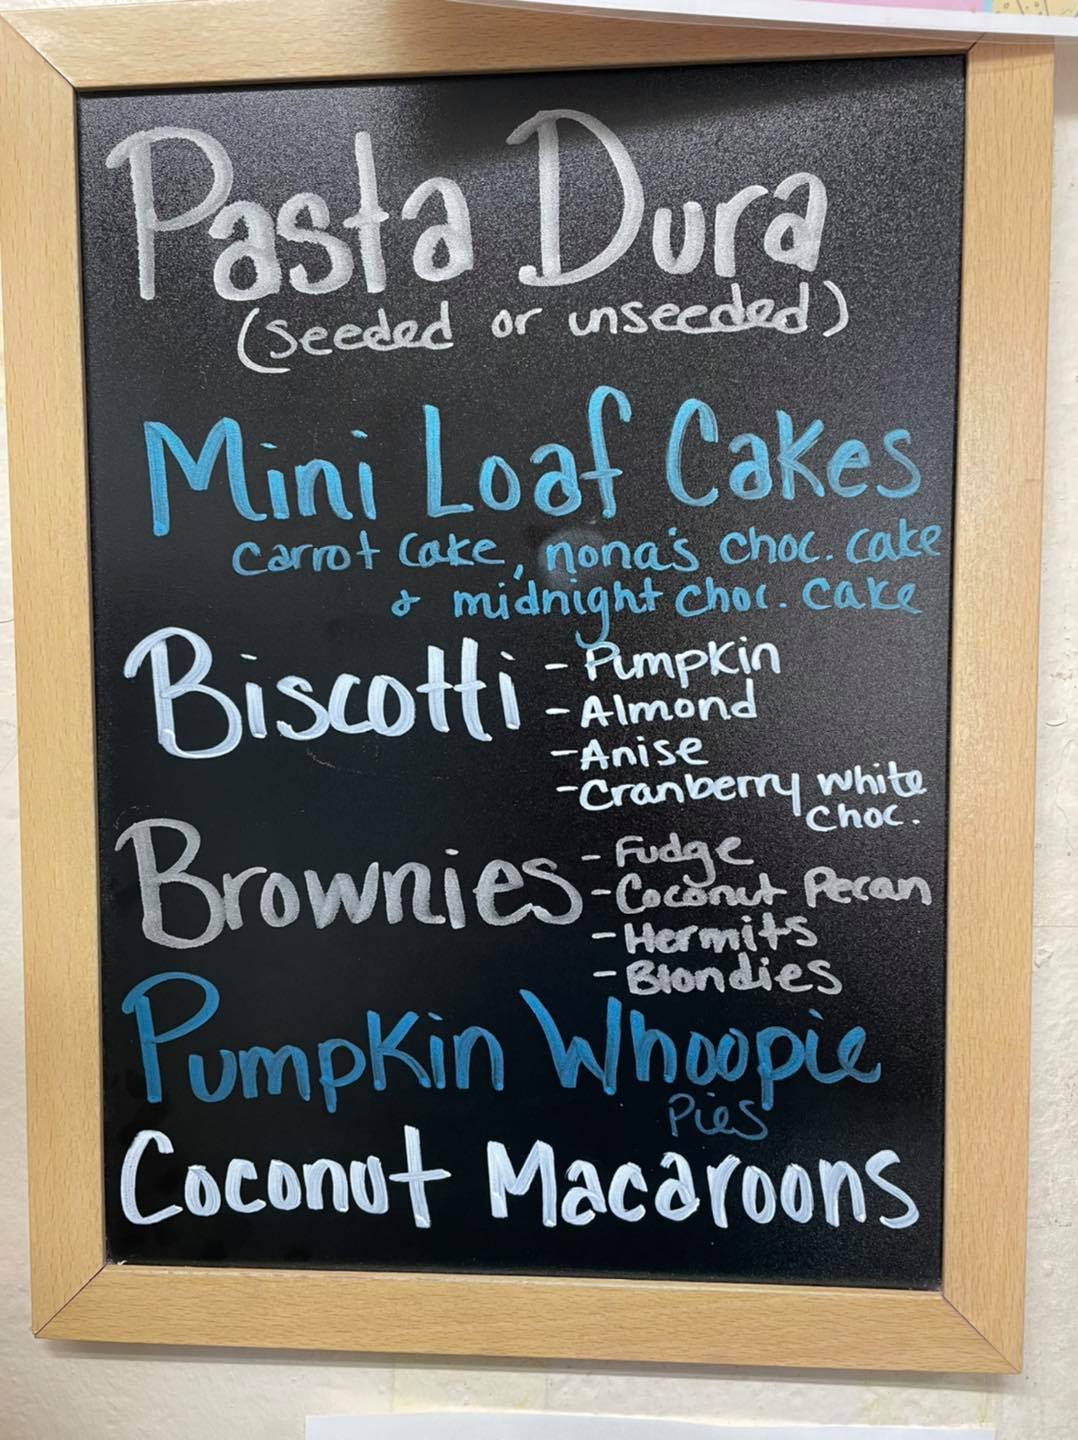 Pasta Dura
(seeded or unseeded)
Mini Loaf Cakes
carrot cake, nona's choc. cake
& midnight choc. cake
Biscotti - Pumpkin
- Almond
- Anise
- Cranberry white
choc.
Brownies - Fudge
- Coconut Pecan
- Hermits
- Blondies
Pumpkin Whoopie
Pies
Coconut Macaroons